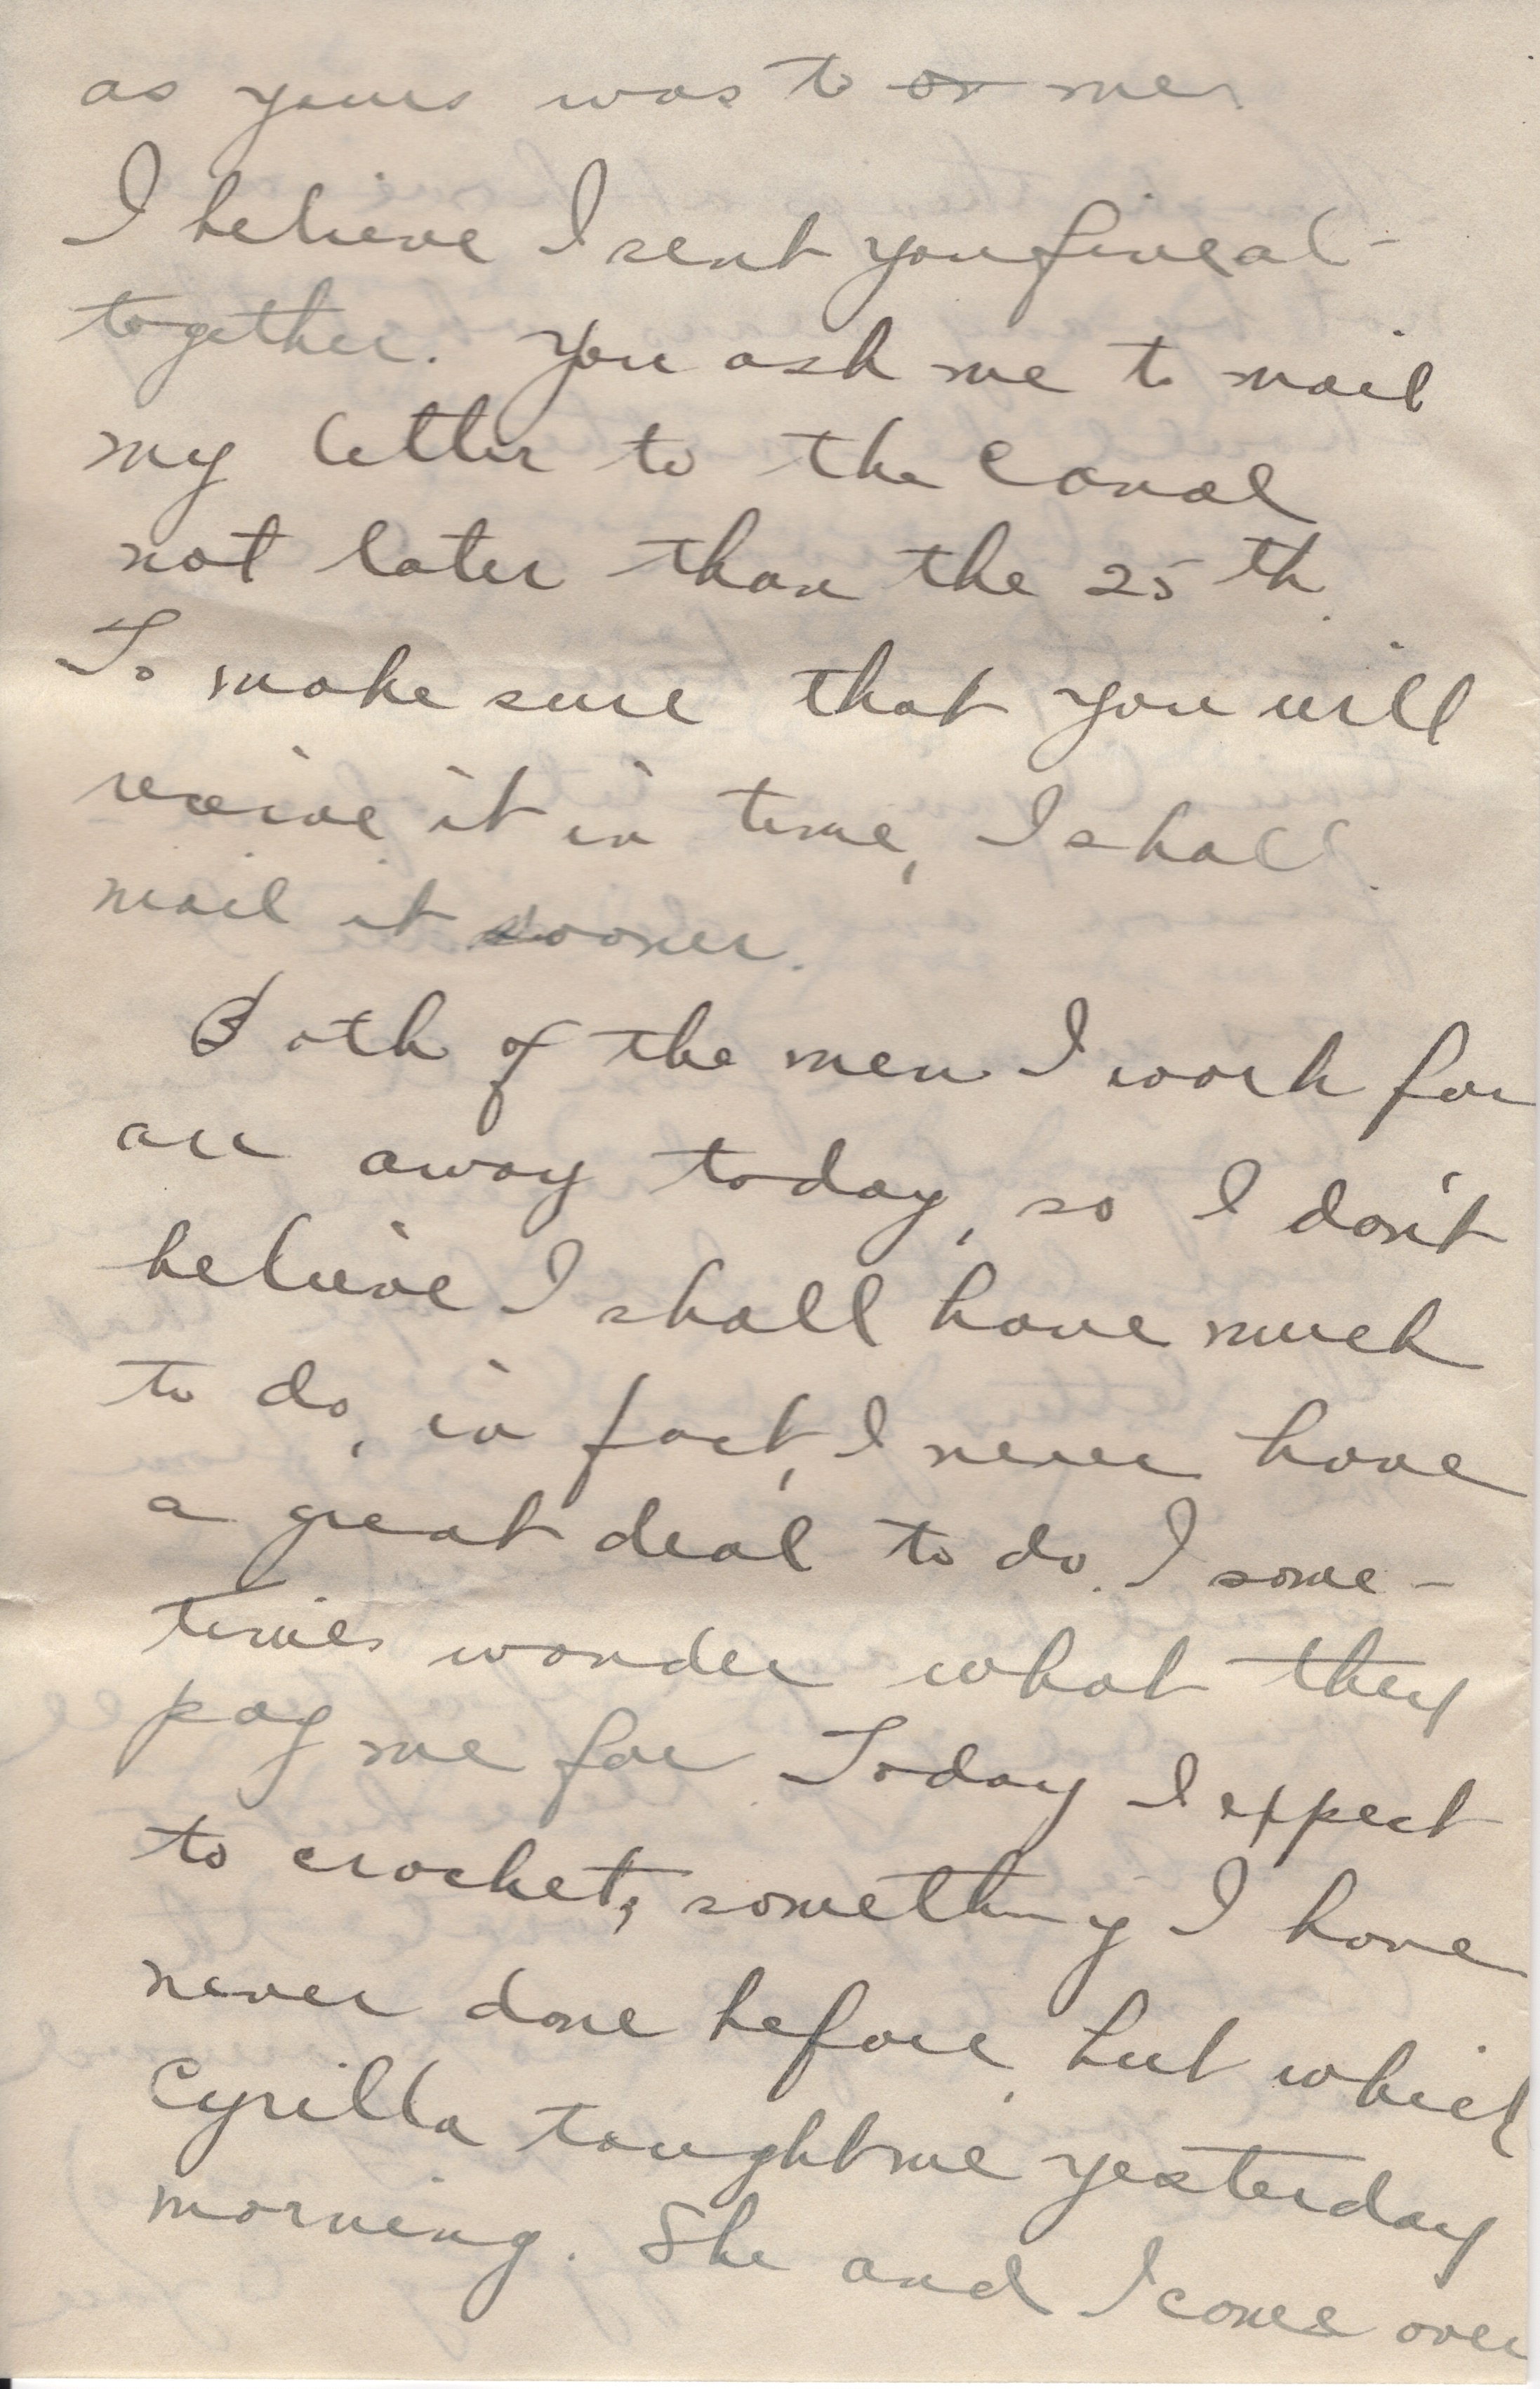 as yours was to or me.
I believe I sent you five al-
together. You ask me to mail
my letter to the Canal
not later than the 25th.
To make sure that you will
receive it in time, I shall
mail it sooner.
Both of the men I work for
are away today, so I don't
believe I shall have much
to do, in fact, I never have
a great deal to do. I some-
times wonder what they
pay me for. Today I expect
to crochet, something I have
never done before, but which
Cyrilla taught me yesterday
morning. She and I come over